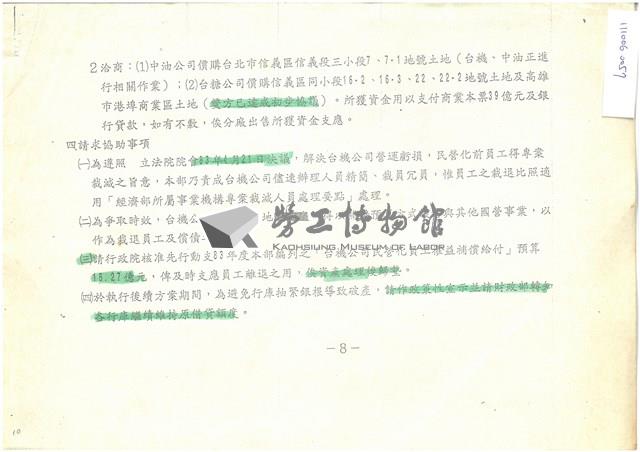 2洽商：(1)中油公司價購台北市信義區信義段三小段7、7-1地號土地（台機、中油正進
行相關作業）；(2)台糖公司價購信義區同小段16-2、16-3、22、22-2地號土地及高雄
市港埠商業區土地（雙方已達成初步協議）。所獲資金用以支付商業本票39億元及銀
行貸款，如有不敷，俟分廠出售所獲資金支應。
四請求協助事項
㈠為遵照　立法院院會83年4月21日決議，解決台機公司營運虧損，民營化前員工得專案
裁減之旨意，本部乃責成台機公司儘速辦理人員精簡、裁員冗員，惟員工之裁退比照適
用「經濟部所屬事業機構專案裁減人員處理要點」處理。
㈡為爭取時效，台機公 地 與其他國營事業，以
作為裁退員工及償債
㈢請行政院核准先行動支83年度本部編列之「台機公司民營化員工權益補償給付」預算
15.27億元，俾及時支應員工離退之用，俟資產處理後歸墊。
㈣於執行後續方案期間，為避免行庫抽緊銀根導致破產，請作政策性宣示並請財政部轉知
各行庫繼續維持原借貸額度。
－8－
勞工博物館
KAOHSIUNG MUSEUM OF LABOR
10